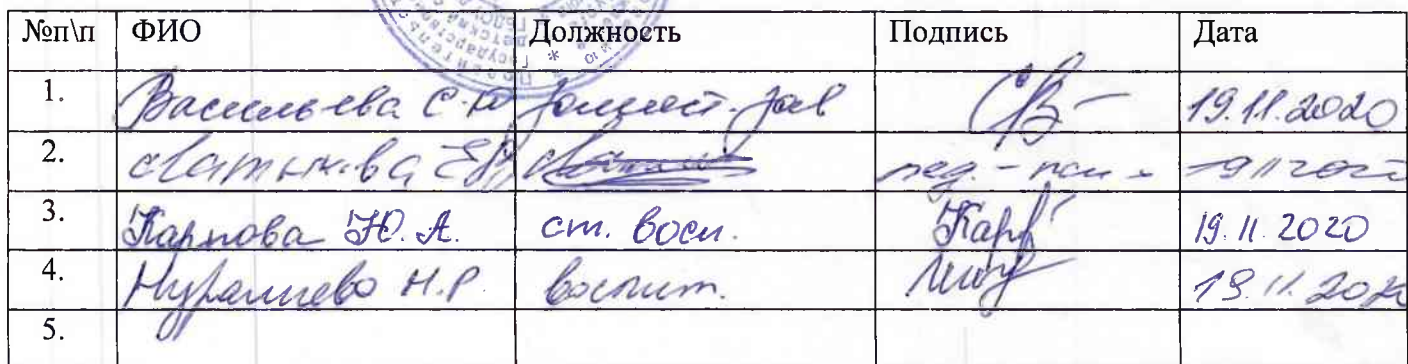 №п\п ФИО Должность Подпись Дата
1. Васильева С.Ю замест. зав СВ 19.11.2020
2. пед. - пси
3. Карпова Ю.А. ст. восп. Карп 19.11.2020
4. Нуралиева Н.Р. воспит. 19.11.2020
5.